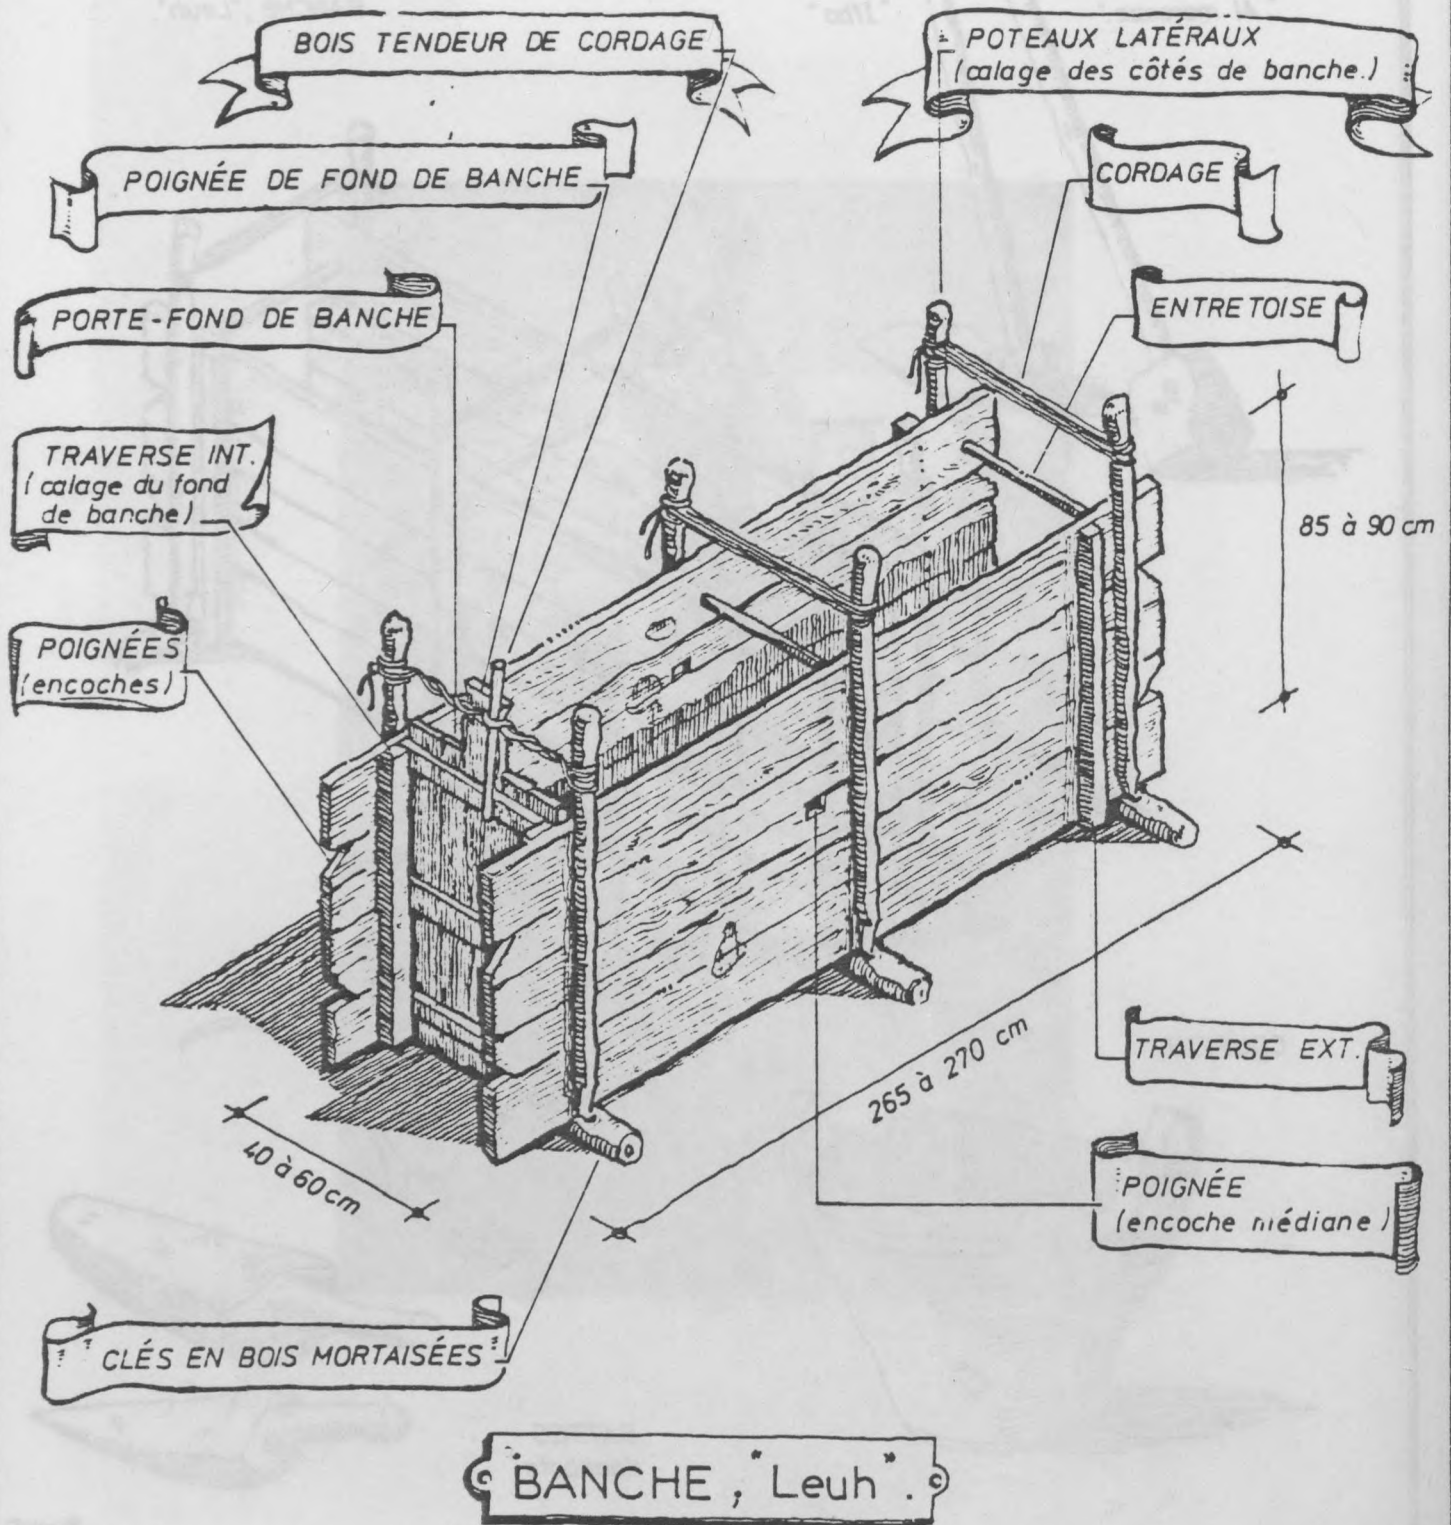 BOIS TENDEUR DE CORDAGE
POTEAUX LATÉRAUX
(calage des côtés de banche.)
POIGNÉE DE FOND DE BANCHE
CORDAGE
PORTE-FOND DE BANCHE
ENTRETOISE
TRAVERSE INT.
(calage du fond
de banche)
85 à 90 cm
POIGNÉES
(encoches)
TRAVERSE EXT.
265 à 270 cm
40 à 60 cm
POIGNÉE
(encoche médiane)
CLÉS EN BOIS MORTAISÉES
BANCHE, "Leuh".